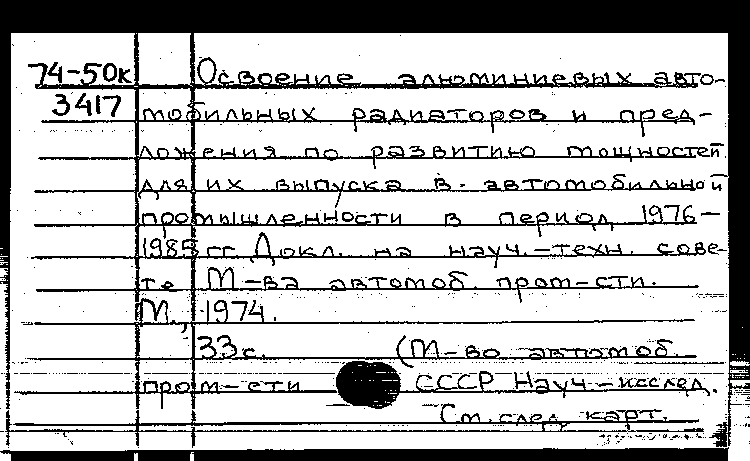 74-50к Освоение алюминиевых авто-
3417 мобильных радиаторов и пред-
ложения по развитию мощностей
для их выпуска в автомобильной
промышленности в период 1976-
1985 гг. Докл. на науч.-техн. сове-
те М-ва автомоб. пром-сти.
М., 1974.
33с. (М-во автомоб.
пром-сти СССР Науч.-исслед.
См. след. карт.